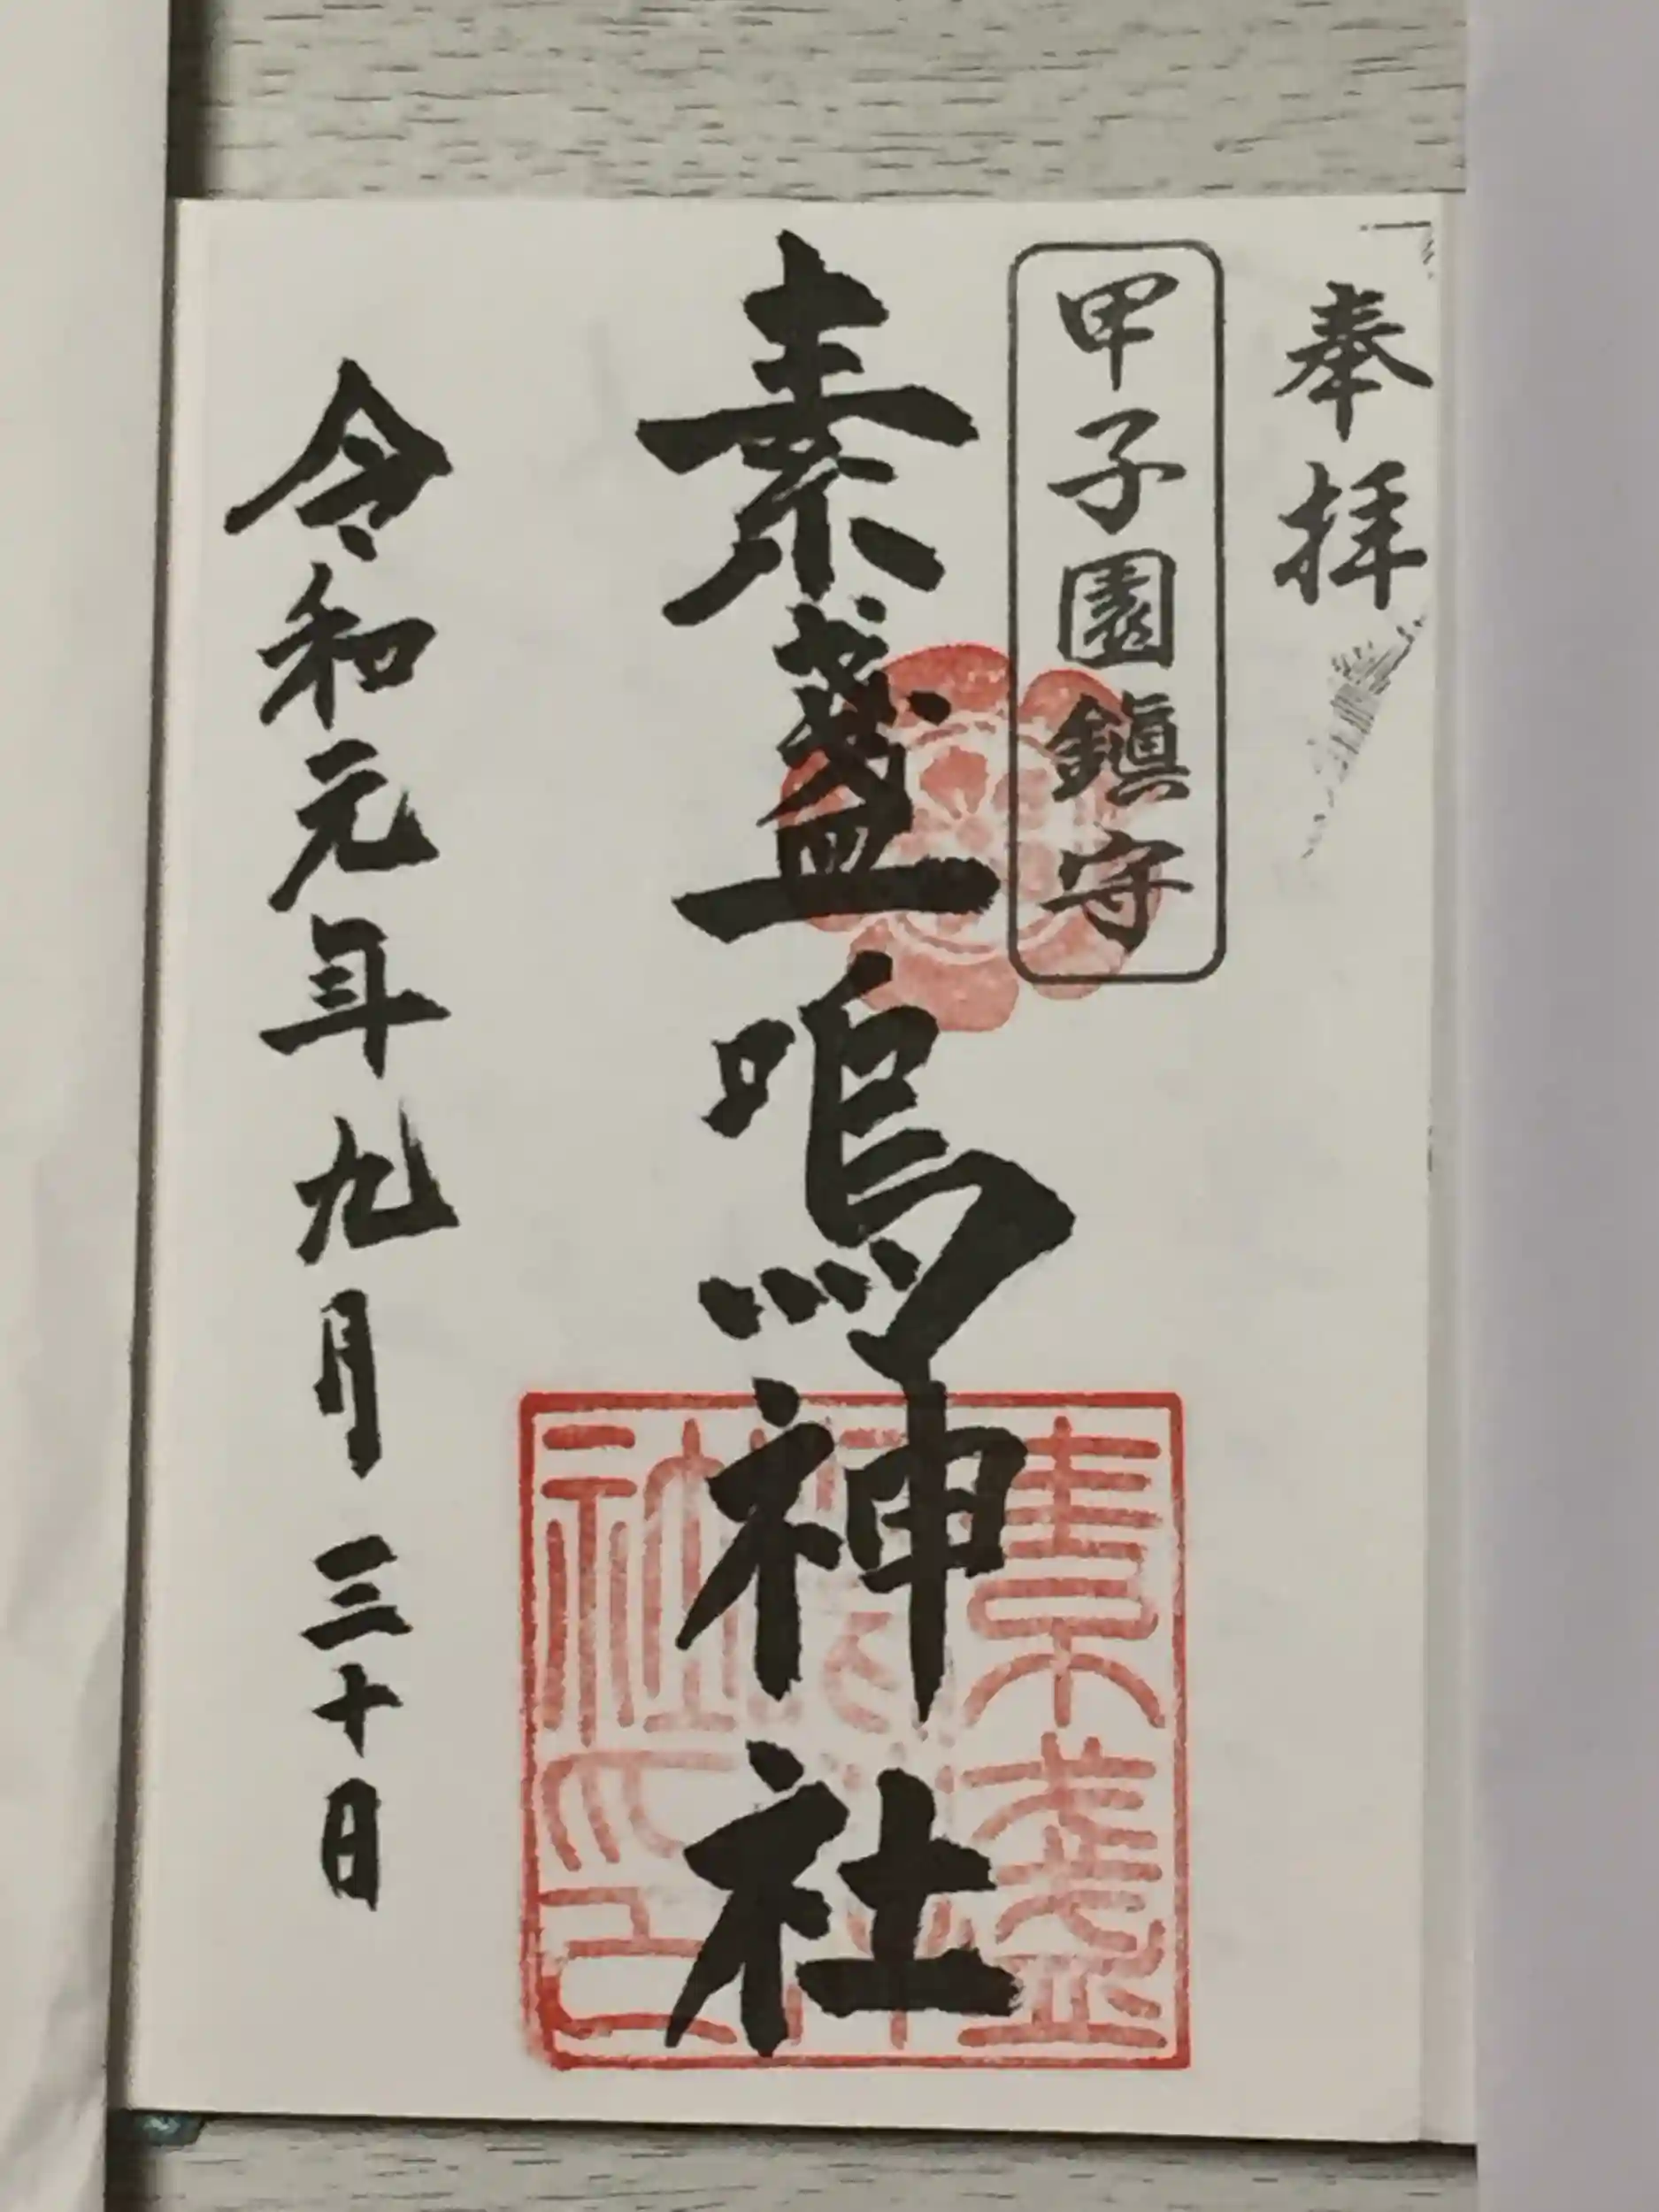 奉拝
甲子園鎮守
素盞嗚神社
素盞嗚神社印
令和元年九月三十日